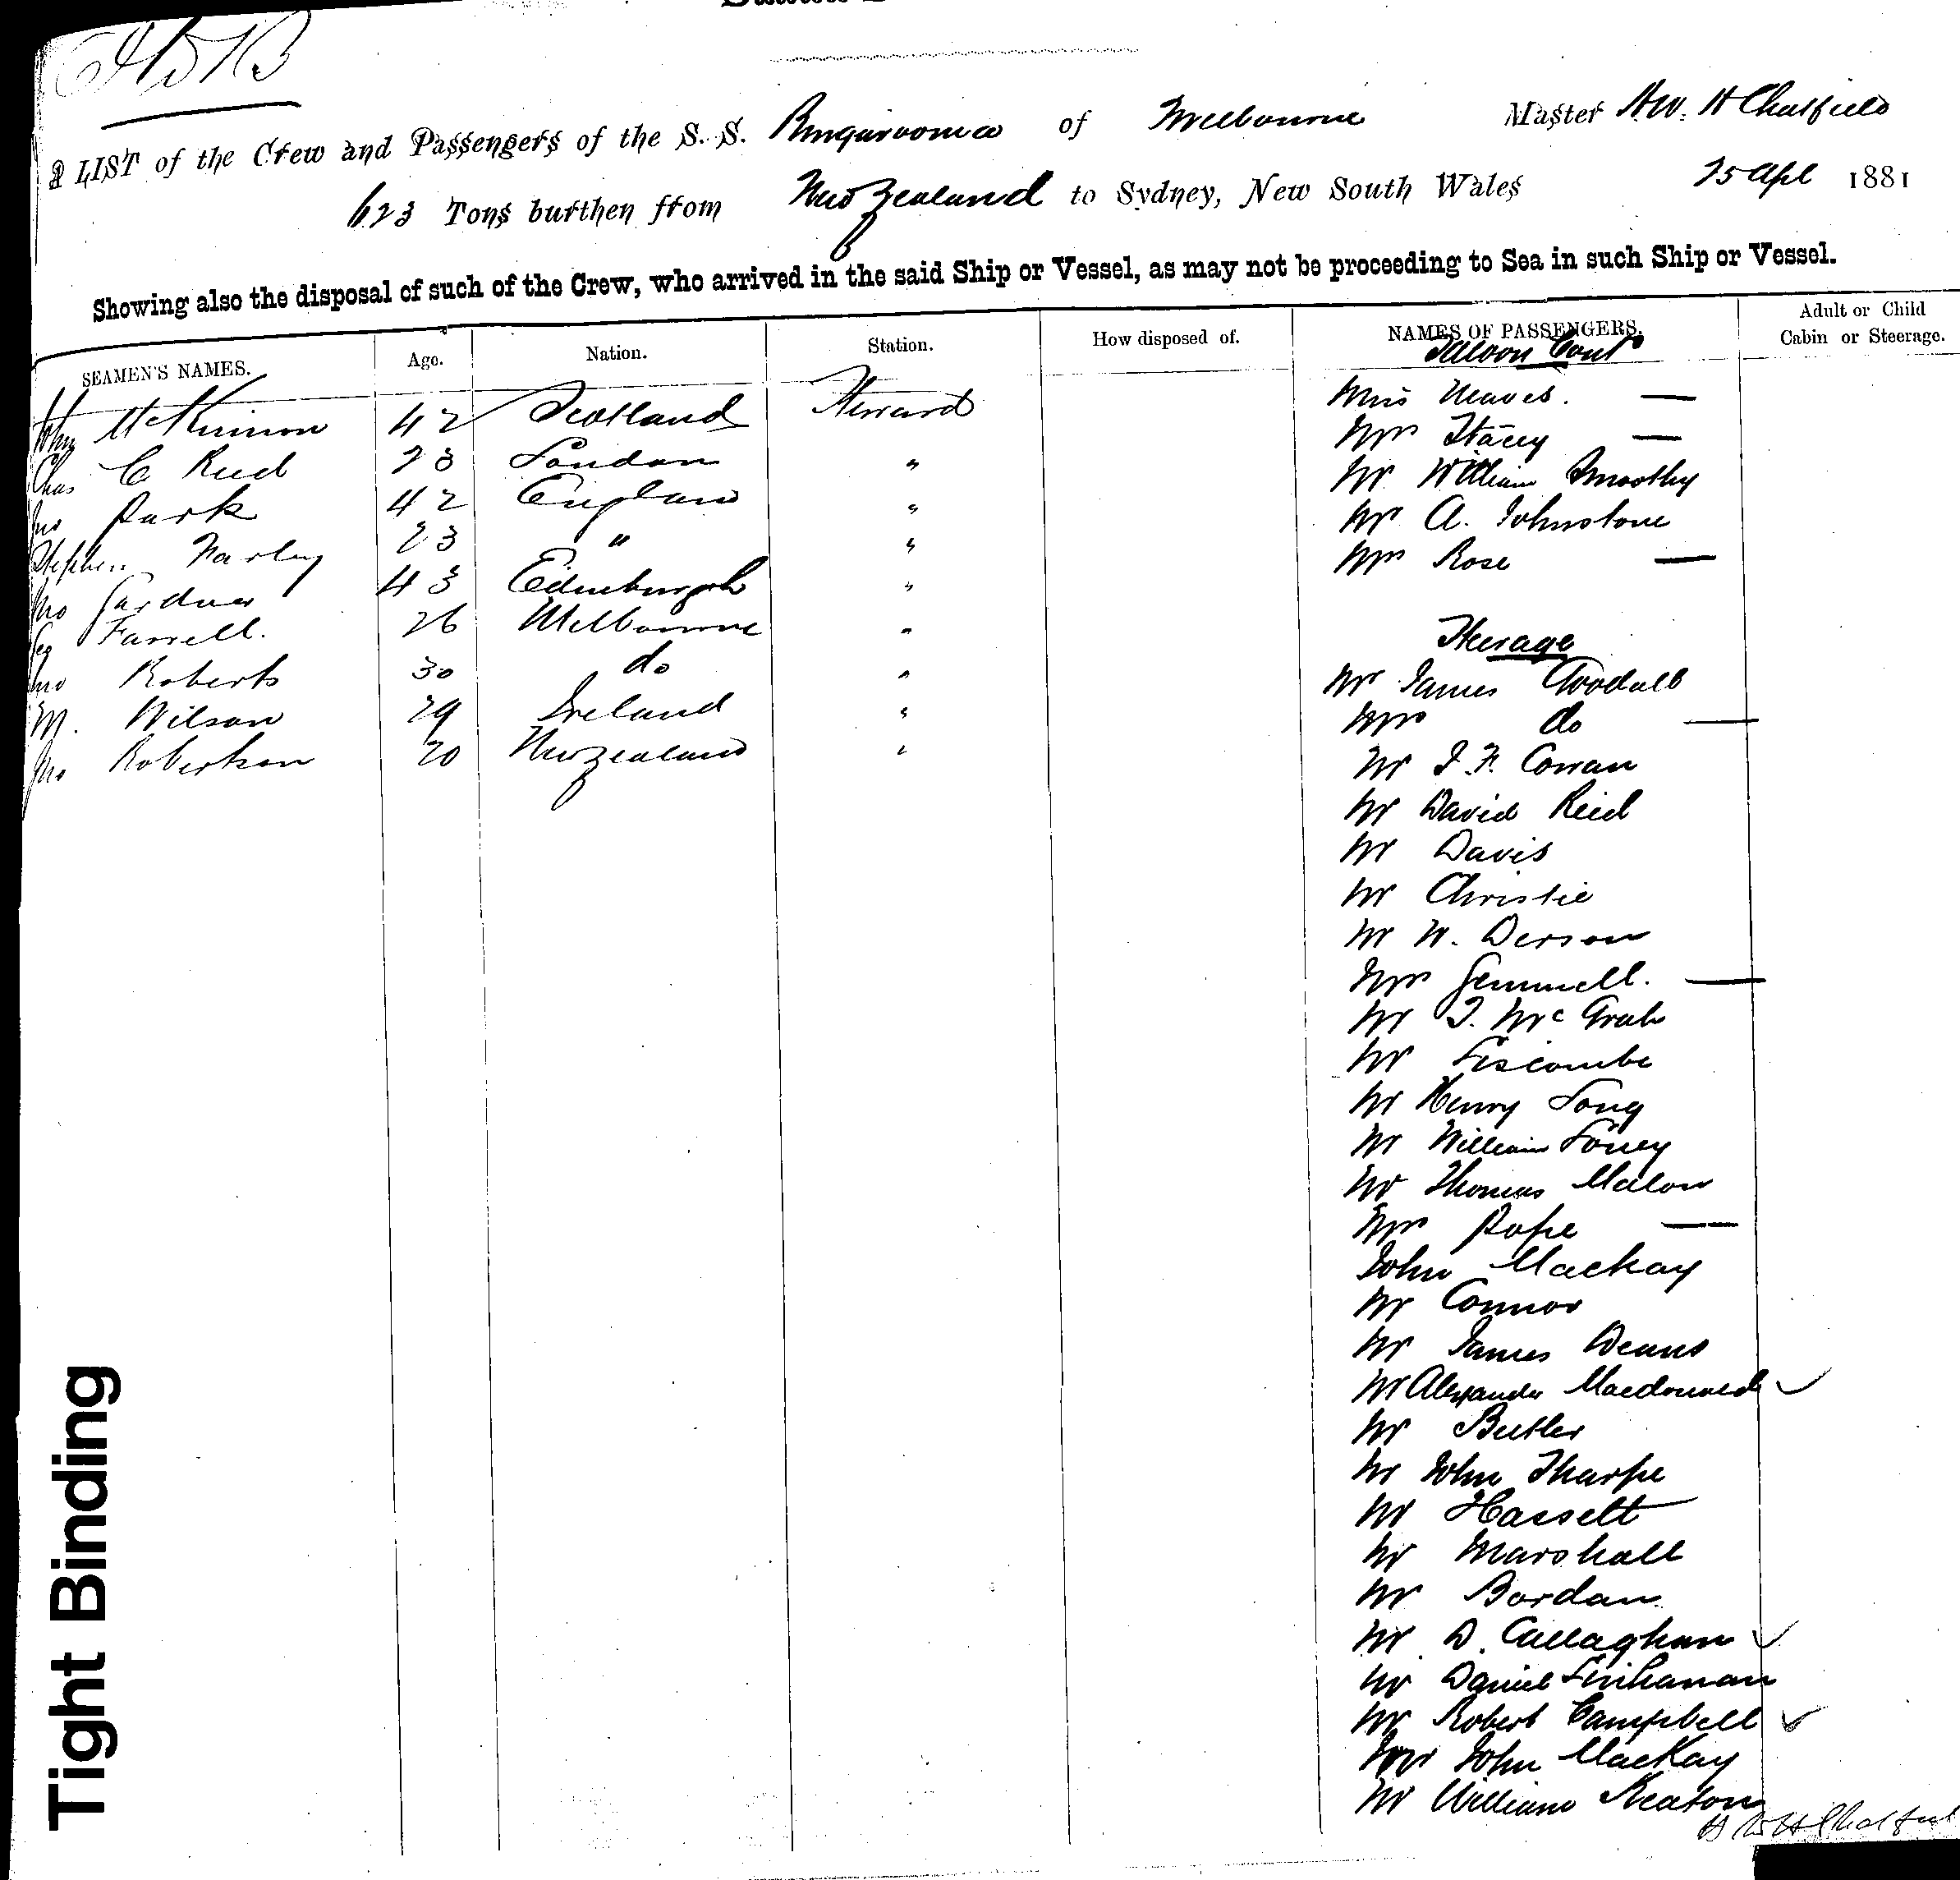 A LIST of the Crew and Passengers of the S. S. Ringarooma of Melbourne Master H.W. H Chatfield
623 Tons burthen from New Zealand to Sydney, New South Wales 25 Apl 1881
Showing also the disposal of such of the Crew, who arrived in the said Ship or Vessel, as may not be proceeding to Sea in such Ship or Vessel.
SEAMEN'S NAMES. Age. Nation. Station. How disposed of. NAMES OF PASSENGERS. Adult or Child Cabin or Steerage.
John McKinnon 42 Scotland Steward
Chas C Reed 23 London "
Jno Park 42 England "
Stephen Farley 23 " "
Jno Gardner 43 Edinburgh "
Geo Farrell. 26 Melbourne "
Jno Roberts 30 do "
M. Wilson 29 Ireland "
Jno Robertson 20 New Zealand "
Saloon Cont
Miss Neaves. —
Mrs Stacey —
Mr William Smoothy
Mr A. Johnstone
Mrs Rose —
Steerage
Mr James Goodall
Mrs do —
Mr J. F. Cowan
Mr David Reid
Mr Davis
Mr Christie
Mr W. Derson
Mrs Gemmell. —
Mr J. McGrath
Mr Liscombe
Mr Henry Long
Mr William Foney
Mr Thomas Malon
Mrs Pope —
John Mackay
Mr Connor
Mr James Deans
Mr Alexander Macdonald ✓
Mr Butler
Mr John Tharpe
Mr Hassett
Mr Marshall
Mr Bordan
Mr D. Callaghan ✓
Mr Daniel
Mr Robert Campbell ✓
Mr John MacKay
Mr William Keaton
H W H Chatfield
Tight Binding